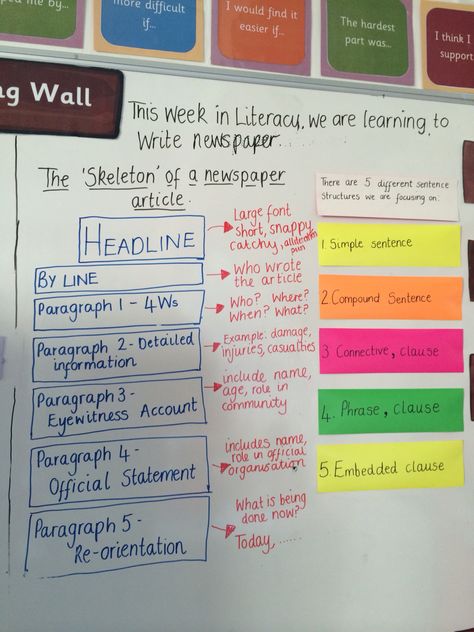 me by...
more difficult
if...
I would find it
easier if...
The hardest
part was...
I think I
support
ng Wall
This week in Literacy, we are learning to
Write newspaper.......
The 'Skeleton' of a newspaper
article.
There are 5 different sentence
structures we are focusing on.
HEADLINE
Large font
short, snappy
catchy, alliteration
pun
1. Simple sentence
BY LINE
Who wrote
the article
Paragraph 1 - 4Ws
Who? Where?
When? What?
2. Compound Sentence
Paragraph 2 - Detailed
information
Example: damage,
injuries, casualties
3 Connective, clause
Paragraph 3 -
Eyewitness Account
include name,
age, role in
community
4. Phrase, clause
Paragraph 4 -
Official Statement
includes name,
role in official
organisation
5. Embedded clause
Paragraph 5 -
Re-orientation
What is being
done now?
Today, ......